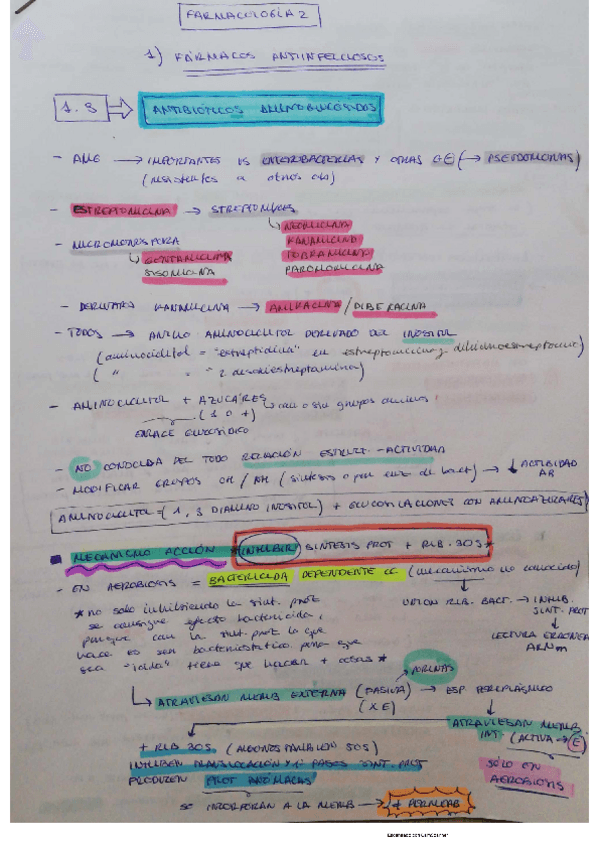 FARMACOLOGÍA 2
1) FÁRMACOS ANTIINFECCIOSOS
1.3 → ANTIBIÓTICOS AMINOGLUCÓSIDOS
- AMG → IMPORTANTES vs ENTEROBACTERIAS Y OTRAS G⊖ (→ PSEUDOMONAS)
(resistentes a otros ab)
- ESTREPTOMICINA → STREPTOMYCES
↳ NEOMICINA
- MICROMONOSPORA KANAMICINA
↳ GENTAMICINA TOBRAMICINA
SISOMICINA PAROMOMICINA
- DERIVADOS KANAMICINA → AMIKACINA / DIBEKACINA
- TODOS → ANILLO AMINOCICLITOL DERIVADO DEL INOSITOL
(aminociclitol = "estreptidina" en estreptomicina y dihidroestreptomic)
( " = " 2 desoxiestreptamina)
- AMINOCICLITOL + AZÚCARES ↳ con o sin grupos aminos
(1 o +)
ENLACE GLUCOSÍDICO
- NO CONOCIDA DEL TODO RELACIÓN ESTRUCT.-ACTIVIDAD
- MODIFICAR GRUPOS OH / NH (síntesis o por enz de bact) → ↓ ACTIVIDAD
AB
AMINOCICLITOL (1,3 DIAMINO INOSITOL) + GLUCOSILACIONES CON AMINOAZÚCARES
■ MECANISMO ACCIÓN INHIBIR SÍNTESIS PROT + RIB. 30S *
- EN AEROBIOSIS = BACTERICIDA DEPENDIENTE CC (mecanismo no conocido)
* no solo inhibiendo la sínt. prot UNION RIB. BACT. → INHIB.
se consigue efecto bactericida, SINT. PROT
porque con la sínt. prot lo que LECTURA ERRÓNEA
hace es ser bacteriostático. para que ARNm
sea "cida" tiene que hacer + cosas *
PORINAS
↳ ATRAVIESAN MEMB EXTERNA (PASIVA) → ESP PERIPLÁSMICO
(X E)
ATRAVIESAN MEMB
INT. (ACTIVA → E)
+ RIB 30S (ALGUNOS TAMBIÉN 50S)
INHIBEN TRANSLOCACIÓN Y 1os PASOS SÍNT. PROT SÓLO EN
PRODUCEN PROT ANÓMALAS AEROBIOSIS
SE INCORPORAN A LA MEMB → + PERMEAB
Escaneado con CamScanner